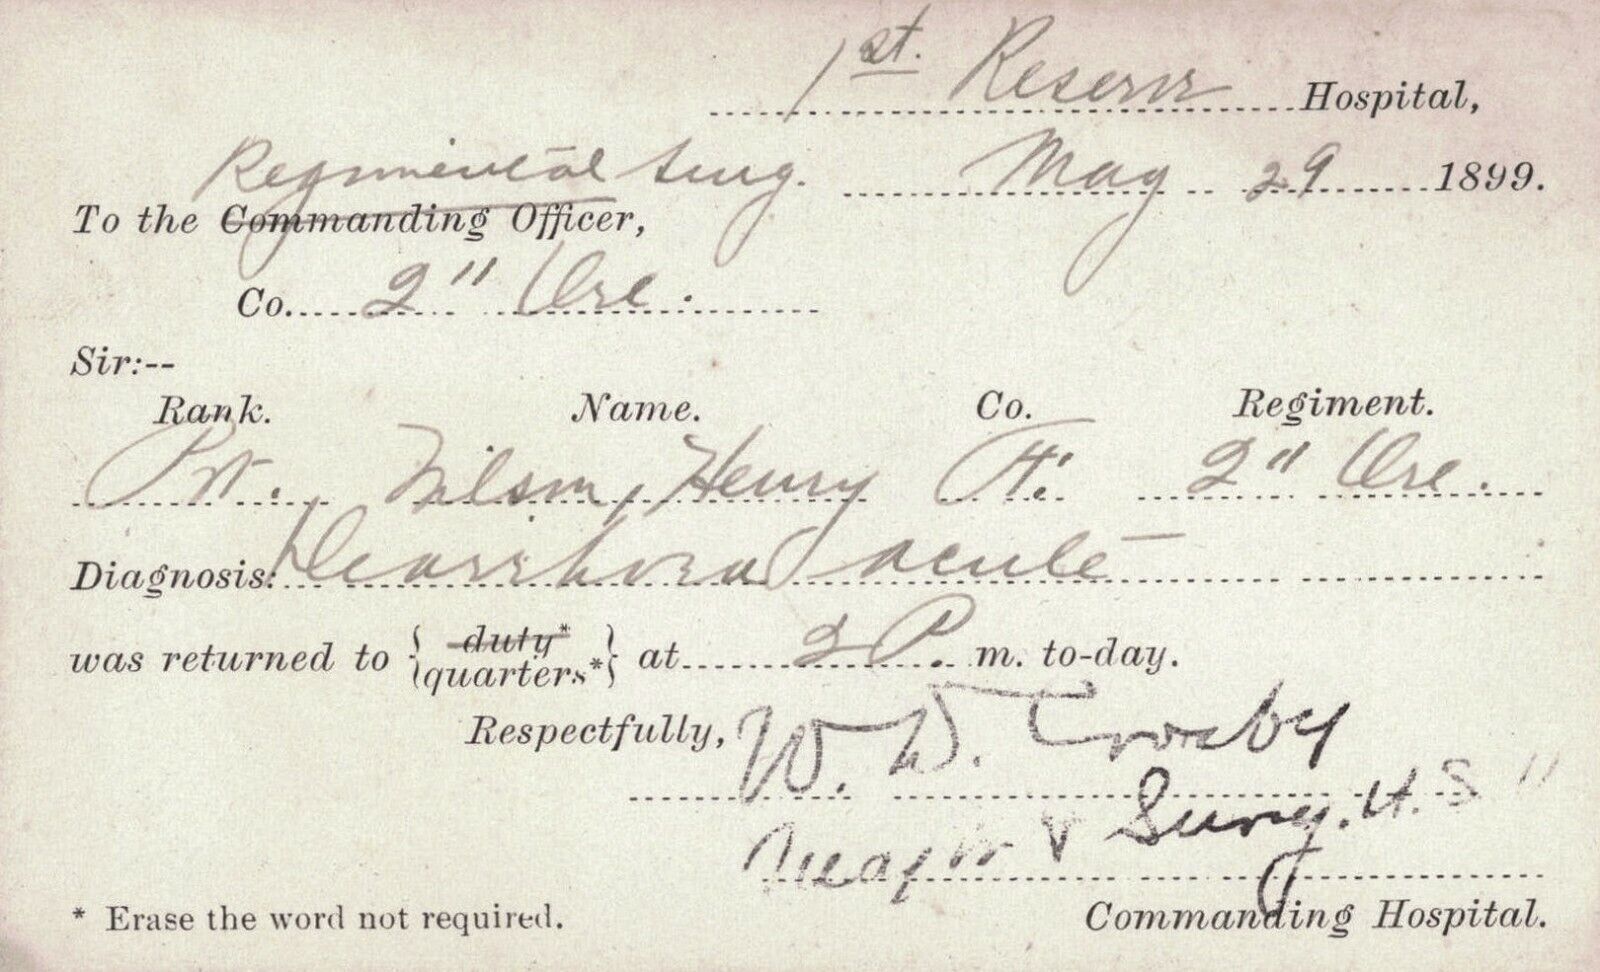 1st. Reserve Hospital,
Regimental Surg. May 29 1899.
To the Commanding Officer,
Co. 2" Ore.
Sir:--
Rank. Name. Co. Regiment.
Pvt. Wilson, Henry H. 2" Ore.
Diagnosis: Diarrhoea acute
was returned to { duty*
quarters* } at 2 P. m. to-day.
Respectfully, W. D. Crosby
Major & Surg. U.S"
Commanding Hospital.
* Erase the word not required.